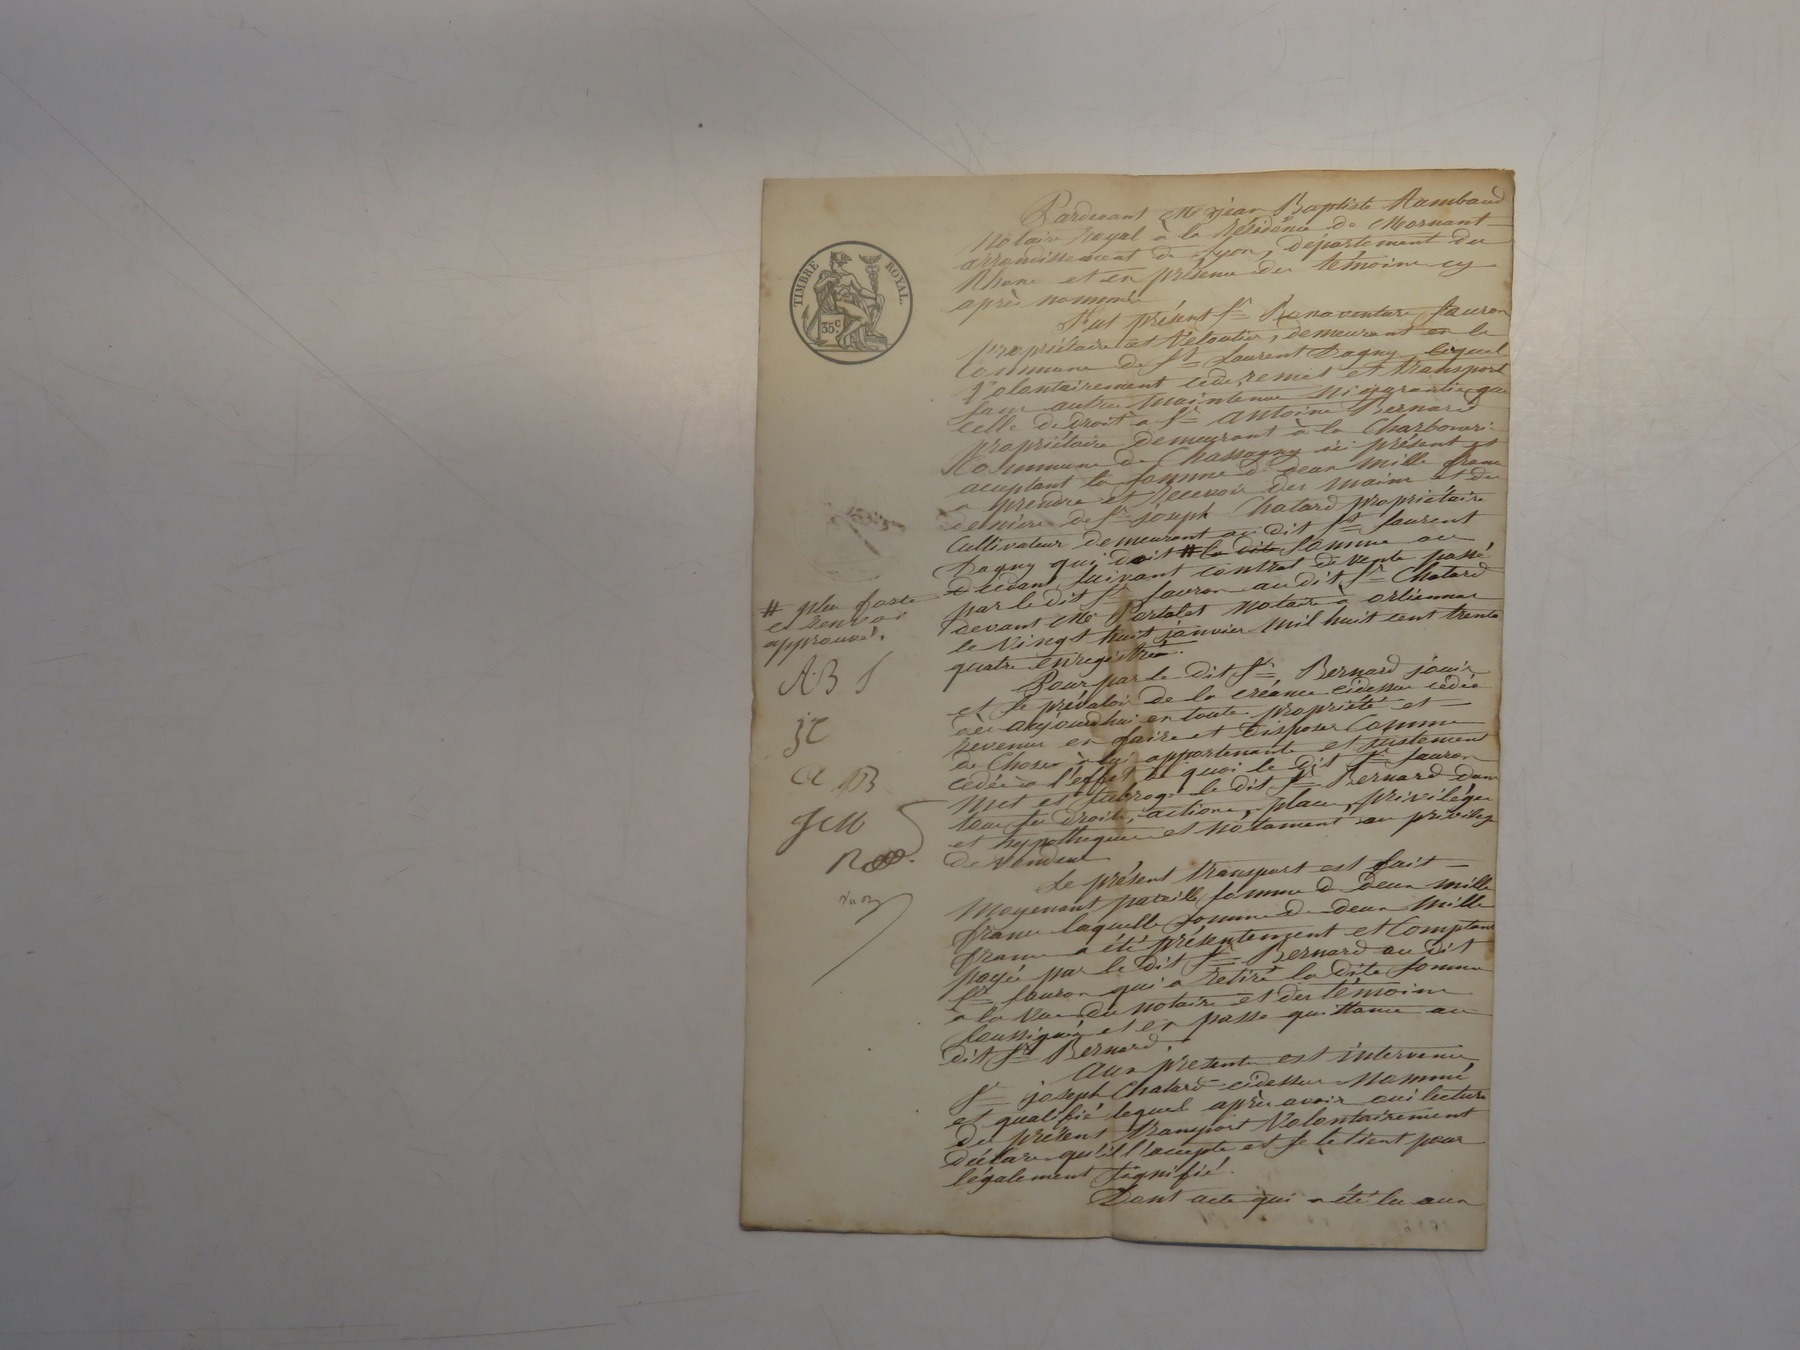 TIMBRE ROYAL.
35 c.
Pardevant Me jean Baptiste Rambaud
Notaire Royal à la Résidence de Mornant
arrondissement de Lyon, département du
Rhone et en présence des témoins cy
après nommés
Fut présent Sr Bonaventure Fauron
propriétaire et Veloutier, demeurant en la
Commune de St Laurent Dagny, lequel
Volontairement cède, remet et transport
sans autre maintenue ni garantie que
celle de droit a Sr antoine Bernard
propriétaire demeurant à la Charbonnri
Commune de Chassagny ici présent et
acceptant la somme de deux mille francs
a prendre et recevoir des mains et des
deniers de Sr joseph Chatard propriétaire
Cultivateur demeurant au dit St Laurent
Dagny qui doit # la dite somme au
cédant suivant contrat de vente passé
par le dit Sr Fauron au dit Sr Chatard
devant Me Portalet Notaire à orliennas
le Vingt huit janvier mil huit cent trente
quatre enregistré.
# plus forte
et renvoi
approuvé.
AB f
jC
JCM
Pour par le dit Sr Bernard jouir
et se prévaloir de la créance cidessus cédée
dès aujourdhui en toute propriété et
revenus en faire et disposer Comme
de Choses à lui appartenante et justement
cédée à l'effet de quoi le dit Sr Fauron
met et subroge le dit Sr Bernard dans
tous ses droits, actions, place, privilèges
et hypothèques et notament au privilég
de Vendeur
Le présent transport est fait
Moyenant pareille somme de deux mille
francs laquelle somme de deux mille
francs a été présentement et Comptant
payée par le dit Sr Bernard au dit
Sr Fauron qui a retiré la dite somme
a la Vue du notaire et des témoins
soussignés et en passe quittance au
dit Sr Bernard.
Aux presentes est intervenu,
Sr joseph Chatard cidessus Nommé
et qualifié lequel après avoir oui lecture
du présent transport Volontairement
déclare qu'il l'accepte et se le tient pour
légalement signifié.
Dont acte qui a été lu aux